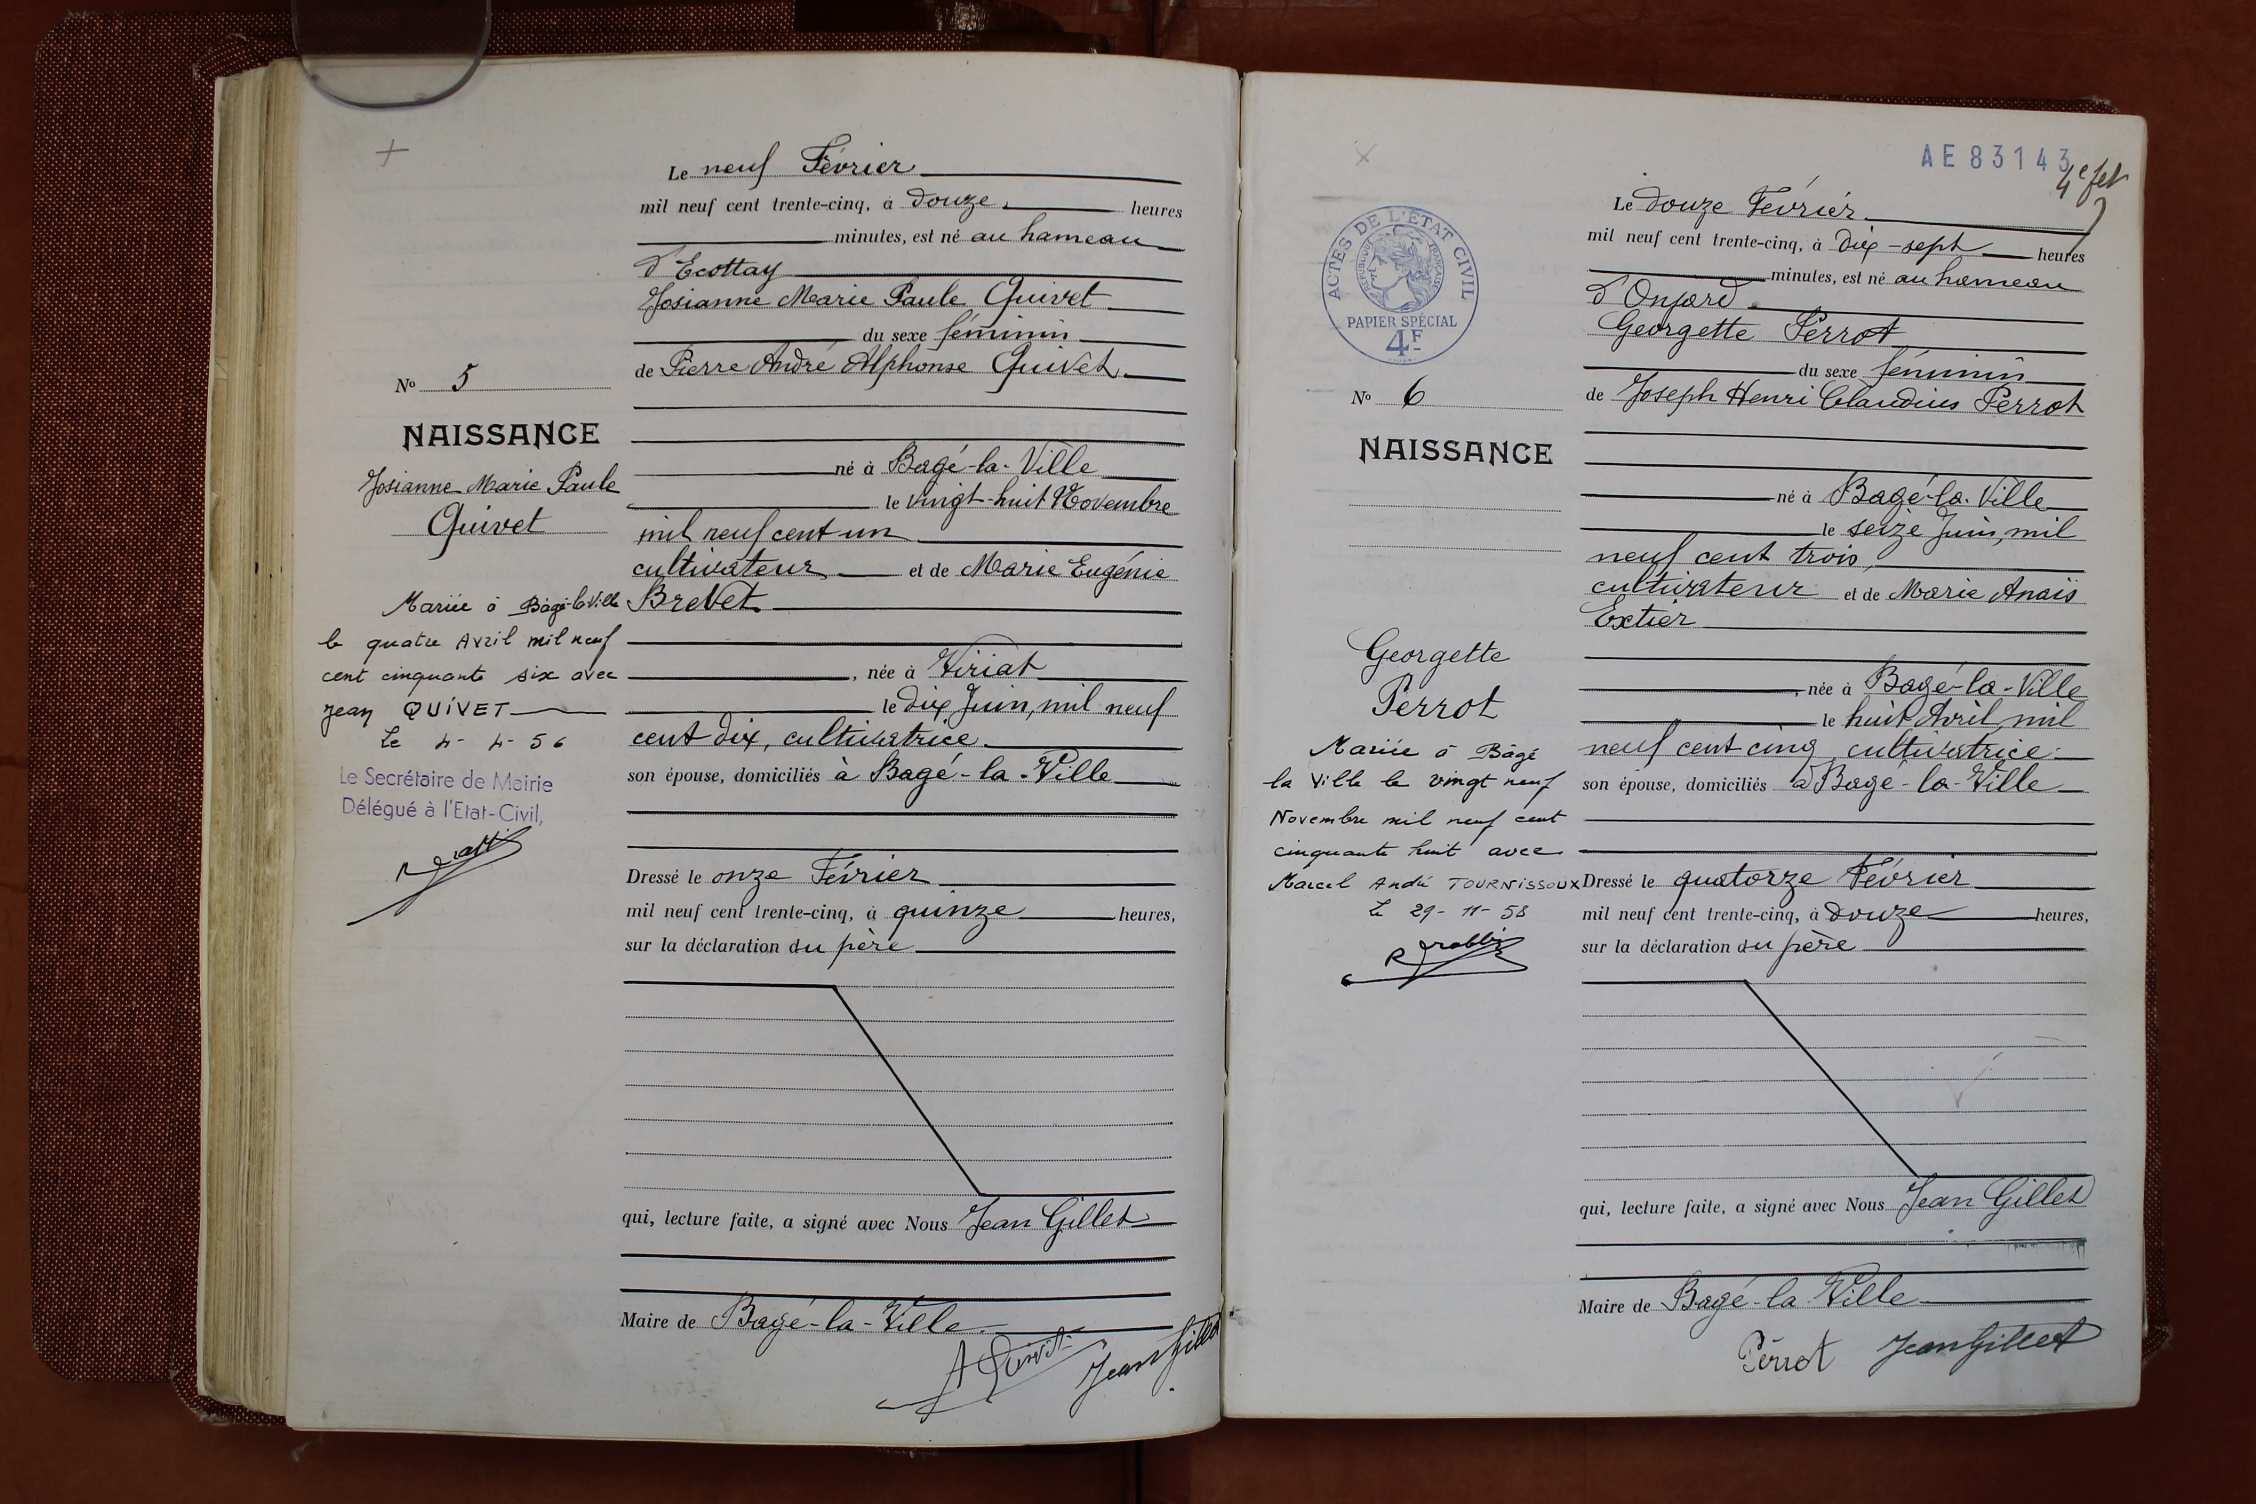 Le neuf Février
mil neuf cent trente-cinq, à douze heures
minutes, est né au hameau
d'Ecottay
Josianne Marie Paule Quivet
du sexe féminin
de Pierre André Alphonse Quivet
né à Bagé-la-Ville
le vingt-huit Novembre
mil neuf cent un
cultivateur et de Marie Eugénie
Brevet
, née à Viriat
le dix Juin, mil neuf
cent dix, cultivatrice
son épouse, domiciliés à Bagé-la-Ville
Dressé le onze Février
mil neuf cent trente-cinq, à quinze heures,
sur la déclaration du père
qui, lecture faite, a signé avec Nous Jean Gillet
Maire de Bagé-la-Ville
A Quivet Jean Gillet
No 5
NAISSANCE
Josianne Marie Paule
Quivet
Mariée à Bâgé-la-Ville
le quatre Avril mil neuf
cent cinquante six avec
Jean QUIVET
Le 4-4-56
Le Secrétaire de Mairie
Délégué à l'Etat-Civil,
AE 83143
4e fet
ACTES DE L'ÉTAT CIVIL
RÉPUBLIQUE FRANÇAISE
PAPIER SPÉCIAL
4F
Le douze Février
mil neuf cent trente-cinq, à dix-sept heures
minutes, est né au hameau
d'Onjard
Georgette Perrot
du sexe féminin
de Joseph Henri Claudius Perrot
né à Bagé-la-Ville
le seize Juin, mil
neuf cent trois,
cultivateur et de Marie Anaïs
Extier
, née à Bagé-la-Ville
le huit Avril, mil
neuf cent cinq, cultivatrice
son épouse, domiciliés à Bagé-la-Ville
Dressé le quatorze Février
mil neuf cent trente-cinq, à douze heures,
sur la déclaration du père
qui, lecture faite, a signé avec Nous Jean Gillet
Maire de Bagé-la-Ville
Perrot Jean Gillet
No 6
NAISSANCE
Georgette
Perrot
Mariée à Bâgé
la Ville le vingt neuf
Novembre mil neuf cent
cinquante huit avec
Marcel André TOURNISSOUX
Le 29-11-58